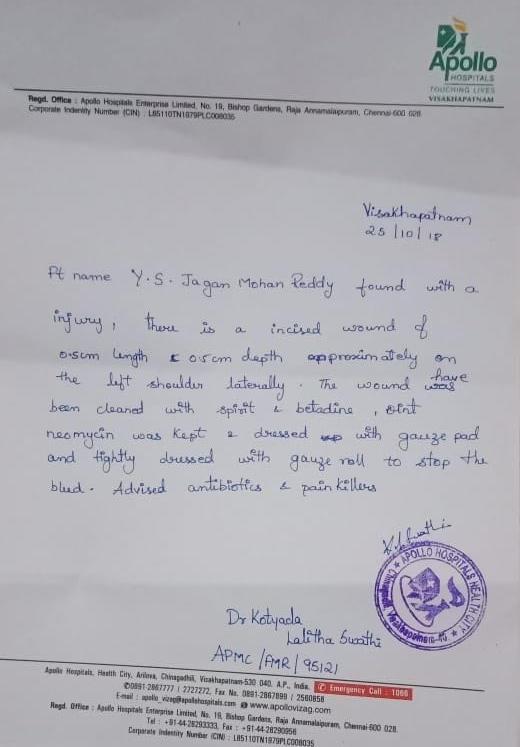 Apollo
HOSPITALS
TOUCHING LIVES
VISAKHAPATNAM
Regd. Office : Apollo Hospitals Enterprise Limited, No. 19, Bishop Gardens, Raja Annamalaipuram, Chennai-600 028.
Corporate Indentity Number (CIN) : L85110TN1979PLC008035
Visakhapatnam
25/10/18
Pt name Y.S. Jagan Mohan Reddy found with a
injury, there is a incised wound of
0.5cm length & 0.5cm depth approximately on
the left shoulder laterally. The wound was have
been cleaned with spirit & betadine, oint
neomycin was kept & dressed with gauze pad
and tightly dressed with gauze roll to stop the
blud. Advised antibiotics & pain killers
APOLLO HOSPITALS HEALTH CITY
Chinagadili, Visakhapatnam-40
Dr Kotyada
Lalitha Swathi
APMC/FMR/95121
Apollo Hospitals, Health City, Arilova, Chinagadhili, Visakhapatnam-530 040. A.P., India. Emergency Call : 1066
0891-2867777 / 2727272, Fax No. 0891-2867899 / 2560858
E-mail : apollo_vizag@apollohospitals.com www.apollovizag.com
Regd. Office : Apollo Hospitals Enterprise Limited, No. 19, Bishop Gardens, Raja Annamalaipuram, Chennai-600 028.
Tel : +91-44-28293333, Fax : +91-44-28290956
Corporate Indentity Number (CIN) : L85110TN1979PLC008035